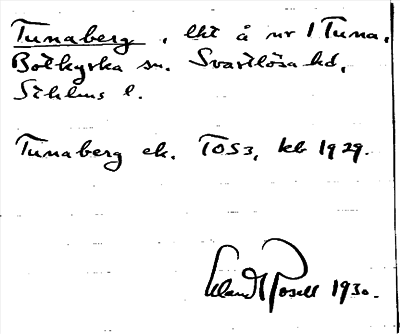 Tunaberg, lht å nr 1 Tuna,
Botkyrka sn. Svartlösa hd,
Sthlms l.
Tunaberg ek. TOS3, kb 1929.
Rosell 1930.